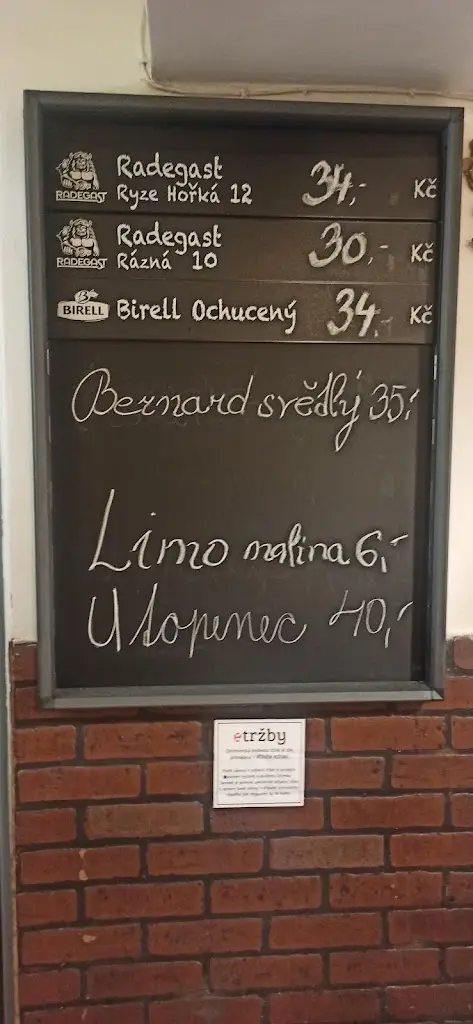 RADEGAST Radegast
Ryze Hořká 12 34,- Kč
RADEGAST Radegast
Rázná 10 30,- Kč
BIRELL Birell Ochucený 34,- Kč
Bernard svědlý 35,-
Limo malina 6,-
Utopenec 40,-
etržby